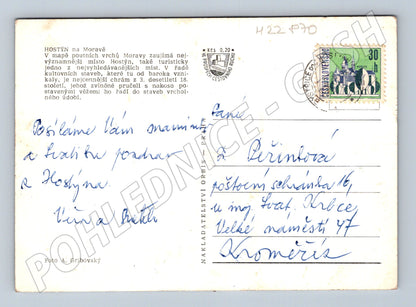 422 870
HOSTÝN na Moravě
V mapě poutních vrchů Moravy zaujímá nej-
významnější místo Hostýn, také turisticky
jedno z nejvyhledávanějších míst. V řadě
kultovních staveb, které tu od baroka vznikaly, je
nejcennější chrám z 2. desetiletí 18.
století, jehož zvlněné průčelí s nakoso po-
stavenými věžemi ho řadí do staveb vrchol-
ného údobí.
30
ČESKOSLOVENSKO
Posíláme Vám mnoho
a srdečný pozdrav
z Hostýna
Věra a
Paní
Peřinková
poštovní schránka 16,
u ing. Svat. Krbce
Velké náměstí 47
Kroměříž
NAKLADATELSTVÍ ORBIS - PRAHA
Foto A. Gribovský
POHLEDNICE - CZECH